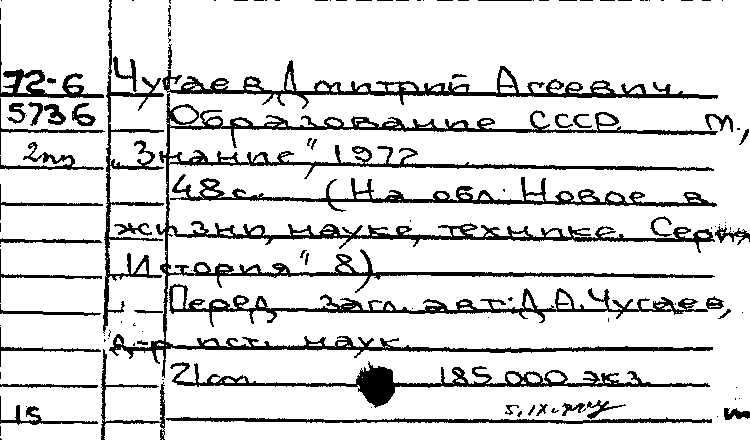 72-6 Чугаев, Дмитрий Агеевич.
5736 Образование СССР М.,
2пр „Знание", 1972
48 с. (На обл. Новое в
жизни, науке, технике. Серия
„История" 8).
Перед загл. авт: Д. А. Чугаев,
д-р ист. наук.
21 см. 185 000 экз.
15